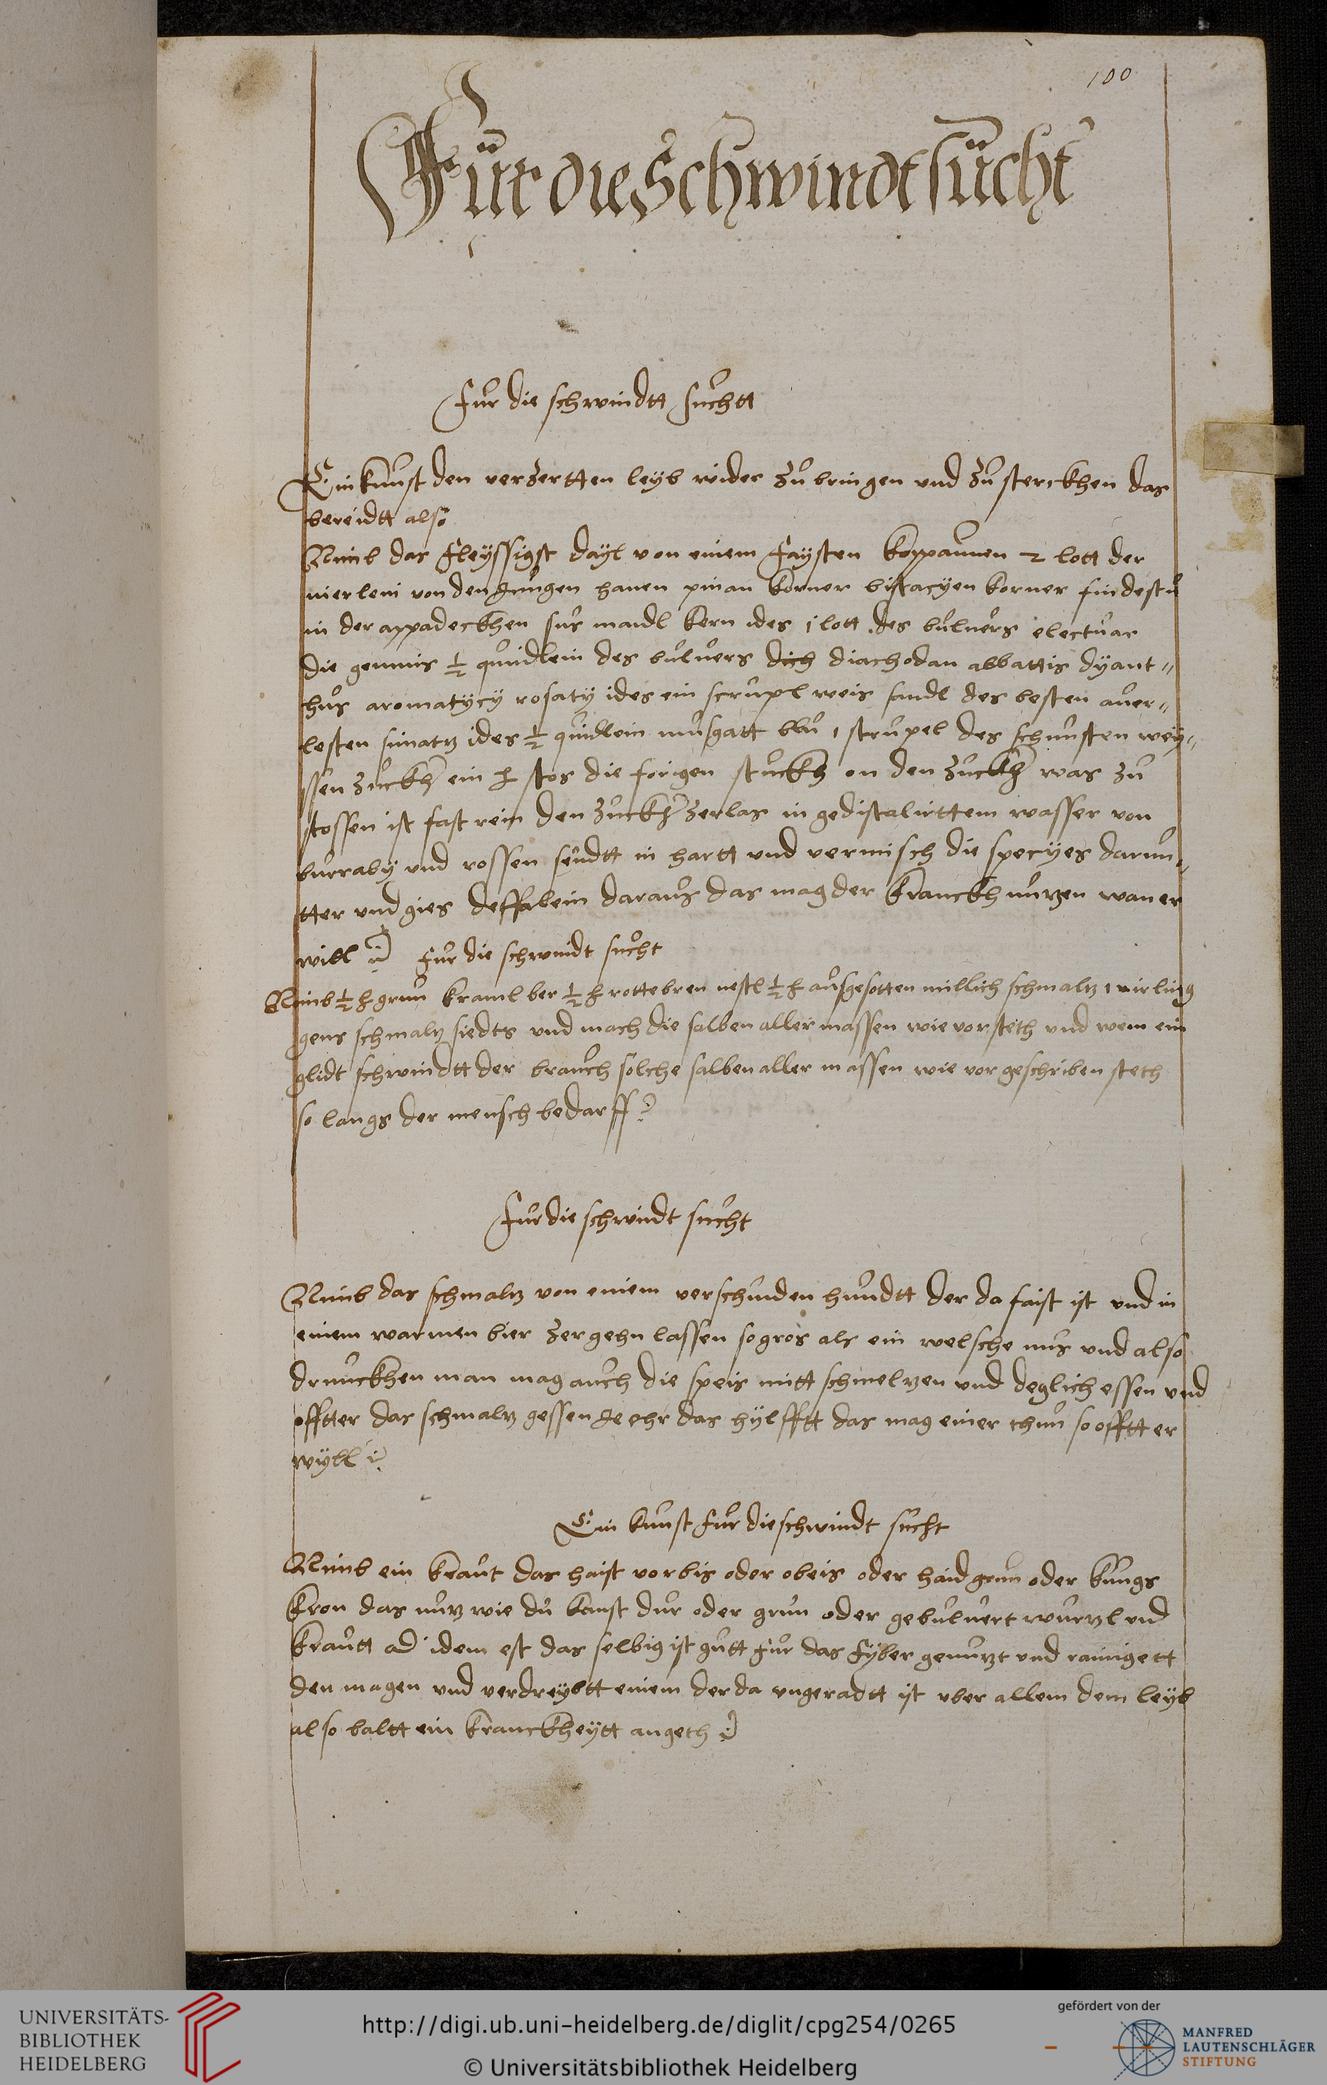 100
Für die Schwindtsücht
Für die schwindtt suchtt
Ein kunst den verzertten leyb wider zu bringen und zu sterckhen das
bereidtt also
Nimb das fleyssigst dayl von einem faysten koppaunen 2 lott der
nierlein von den jungen hanen pinan körner bistacyen korner findestu
in der appadeckhen sus mandl kern ides 1 lott des buluers electuar
die gemmis ½ quindlein des buluers dich diachodan abbattis dyant-
hus aromatycy rosaty ides ein scrupl weis sandl des besten auser-
lesten zimatz ides ½ quindlein musgatt blu 1 strupel des schnusten wey-
ssen zuckher ein stos die forigen stuckh on den zuckher was zu
stossen ist fast rein den zuckher zerlas in gedistalirttem wasser von
burraby und rossen seudtt in hartt und vermisch die specyes darun-
tter und gies deffalein daraus das mag der kranckh nutzen wan er
will Für die schwindt sucht
Nimb ½ grun kraml ber ½ rottebren nestl ½ ausgesotten millich schmaltz 1 virling
gens schmaltz siedts und mach die salben aller massen wie vor steth und wem ein
glidt schwindtt der brauch solche salben aller massen wie vor geschriben steth
so langs der mensch bedarff
Für die schwindt sucht
Nimb das schmaltz von einem verschniden hundtt der da faist ist und in
einem warmen bier zergehn lassen so gros als ein welsche nus und also
druncken man mag auch die speis mitt schmeltzen und deglich essen und
offtter das schmaltz gessen je ehr das hylfftt das mag einer thun so offtt er
wyll
Ein kunst für die schwindt sucht
Nimb ein kraut das haist vorbis oder obeis oder haidgrun oder kungs
kron das nutz wie du kanst dur oder grun oder gebuluert wurtzl und
krautt ad idem est das selbig ist gutt für das fyber genutzt und rainigett
den magen und verdreybtt einem der da ungeradtt ist uber allem dem leyb
also baltt ein kranckheytt angeth
UNIVERSITÄTS-
BIBLIOTHEK
HEIDELBERG
http://digi.ub.uni-heidelberg.de/diglit/cpg254/0265
© Universitätsbibliothek Heidelberg
gefördert von der
MANFRED
LAUTENSCHLÄGER
STIFTUNG